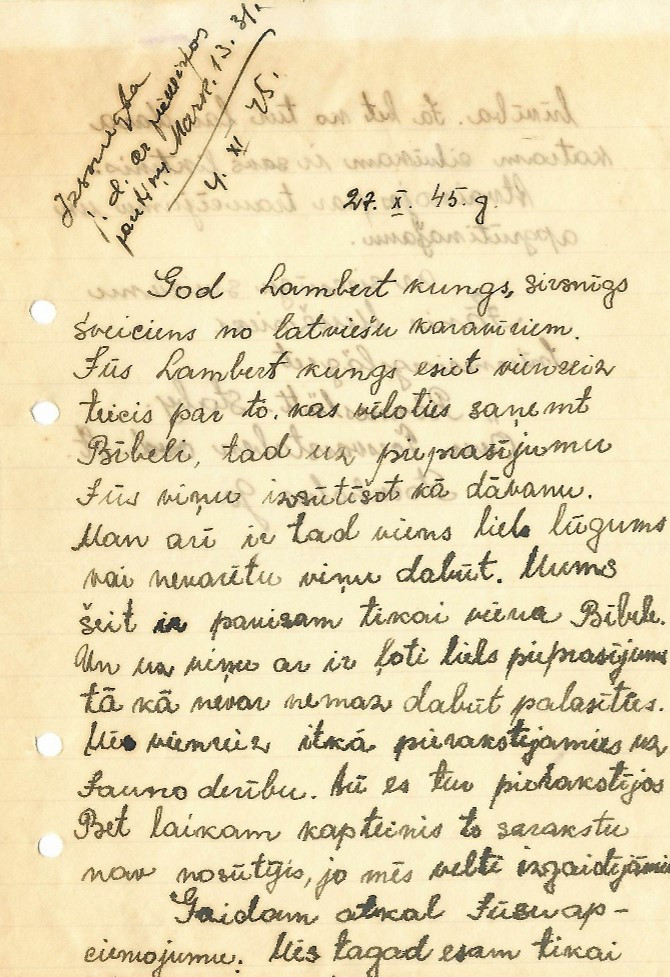 Izsniegta
j. d. ar pievienotas
pantiņu Mark. 13. 31.
4. XI 45.
27. X. 45. g.
God Lambert kungs, sirsnīgs
sveiciens no latviešu karavīriem.
Jūs Lambert kungs esiet vienreiz
teicis par to. kas vēloties saņemt
Bībeli, tad uz pieprasījumu
Jūs viņu izsūtīšot kā dāvanu.
Man arī ir tad viens liels lūgums
vai nevarētu viņu dabūt. Mums
šeit ir pavisam tikai viena Bībele.
Un uz viņu ar ir ļoti liels pieprasījums
tā kā nevar nemaz dabūt palasīties.
Mēs vienreiz itkā pierakstījamies uz
Jauno derību. Arī es tur pierakstījos
Bet laikam kapteinis to sarakstu
nav nosūtījis, jo mēs velti izgaidījāmies
Gaidam atkal Jūsu ap-
ciemojumu. Mēs tagad esam tikai